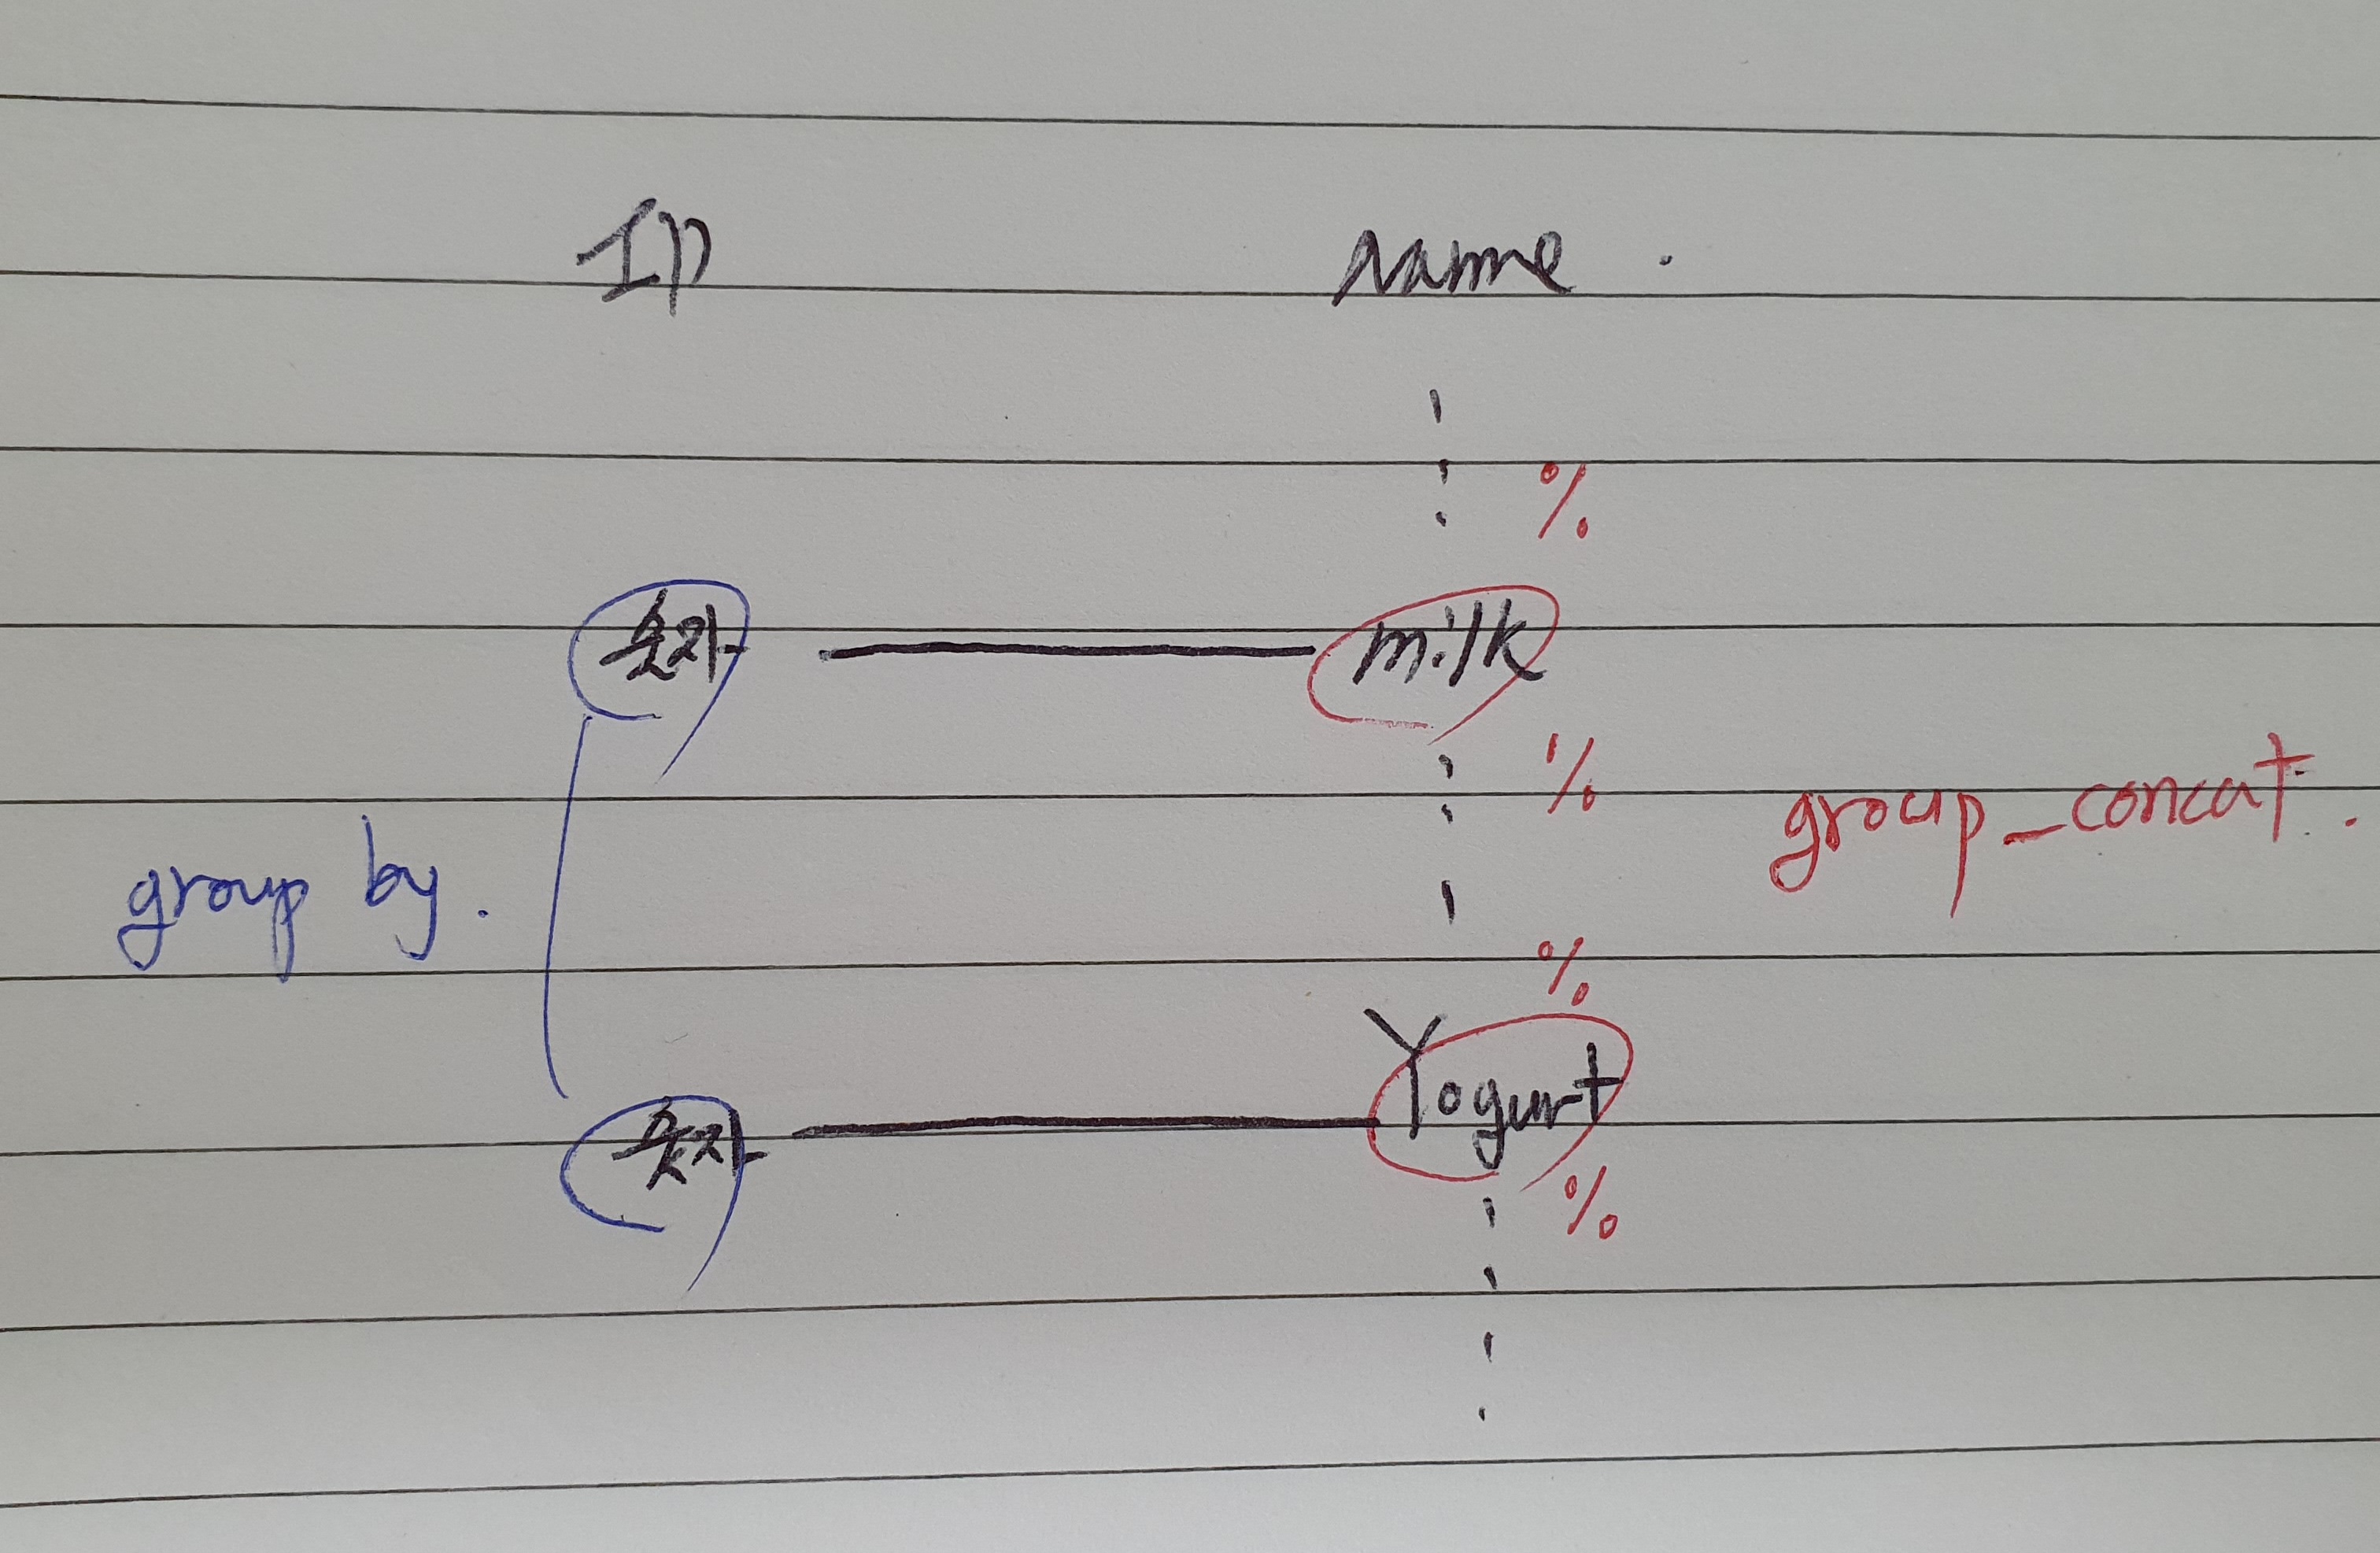 ID name .
%
숫자 milk
%
group_concat.
group by.
%
숫자 Yogurt
%